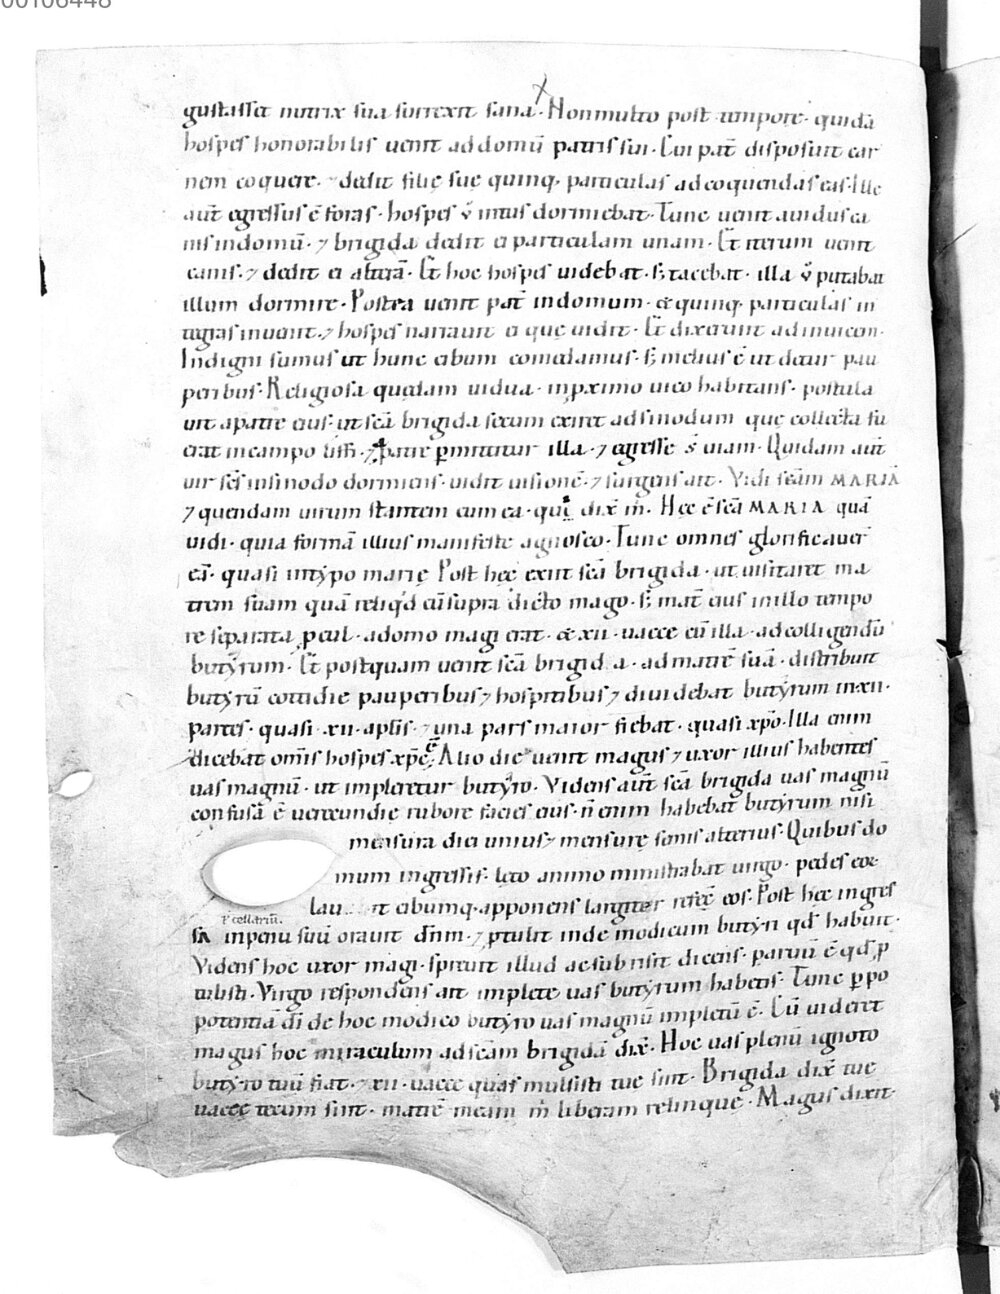 00106448
gustasset nutrix sua surrexit sana· Non multo post tempore· quidā
hospes honorabilis uenit ad domū patris sui· Cui pat̄ disposuit car
nem coquere· ⁊ dedit filię suę quinq; particulas ad coquendas eas· Ille
aut̄ egressus ē foras· hospes v̄ intus dormiebat· Tunc uenit auidus ca
nis in domū· ⁊ brigida dedit ei particulam unam· Et iterum uenit
canis· ⁊ dedit ei alterā· Et hoc hospes uidebat· s; tacebat· illa v̄ putabat
illum dormire· Postea uenit pat̄ in domum· & quinq; particulas in
tegras inuenit· ⁊ hospes narrauit ei quę uidit· Et dixerunt ad inuicem·
Indigni sumus ut hunc cibum comedamus· s; melius ē ut detur pau
peribus· Religiosa quędam uidua· in p̱ximo uico habitans· postula
uit a patre eius· ut sc̄ā brigida secum exiret ad sinodum quę collecta fu
erat in campo liffi· ⁊ patre p̱mittitur illa· ⁊ egresse s̄ uiam· Quidam aut̄
uir sc̄s in sinodo dormiens· uidit uisionē· ⁊ surgens ait· Vidi sc̄am MARIĀ
⁊ quendam uirum stantem cum ea· qui dix̄ m̄· Hęc ē sc̄ā MARIA quā
uidi· quia formā illius manifeste agnosco· Tunc omnes glorificauer̄
eā· quasi in typo marię Post hęc exiit sc̄ā brigida· ut uisitaret ma
trem suam quā reliqd̄ cū supra dicto mago· s; mat̄ eius in illo tempo
re separata p̱cul· a domo magi erat· & xii· uacce cū illa· ad colligendū
butyrum· Et postquam uenit sc̄ā brigida· ad matrē suā· distribuit
butyrū cottidie pauperibus ⁊ hospitibus ⁊ diuidebat butyrum in·xii·
partes· quasi·xii·apl̄is· ⁊ una pars maior fiebat· quasi xp̄o· Illa enim
dicebat omīs hospes xp̄c ē; Alio die uenit magus ⁊ uxor illius habentes
uas magnū· ut impleretur butyro· Videns aut̄ sc̄ā brigida uas magnū
confusā ē uerecundię rubore facies eius· n̄ enim habebat butyrum nisi
mensura diei unius ⁊ mensurę semis alterius· Quibus do
mum ingressis· lęto animo ministrabat uirgo· pedes eoꝝ
lauit cibumq; apponens largiter refec̄ eos· Post hęc ingres
ł cellariū·
sa in penu suū orauit dn̄m· ⁊ p̱tulit inde modicum butyri qd̄ habuit·
Videns hoc uxor magi· spreuit illud ac subrisit dicens· paruū ē qd̄ p̱
tulisti· Virgo respondens ait implete uas butyrum habetis· Tunc p̱po
potentiā dī de hoc modico butyro uas magnū impletū ē· Cū uideret
magus hoc miraculum ad sc̄am brigidā dix̄· Hoc uas plenū ignoto
butyro tuū fiat· ⁊ xii· uaccę quas mulsisti tuę sint· Brigida dix̄ tuę
uaccę tecum sint· matrē meam m̄ liberam relinque· Magus dixit·